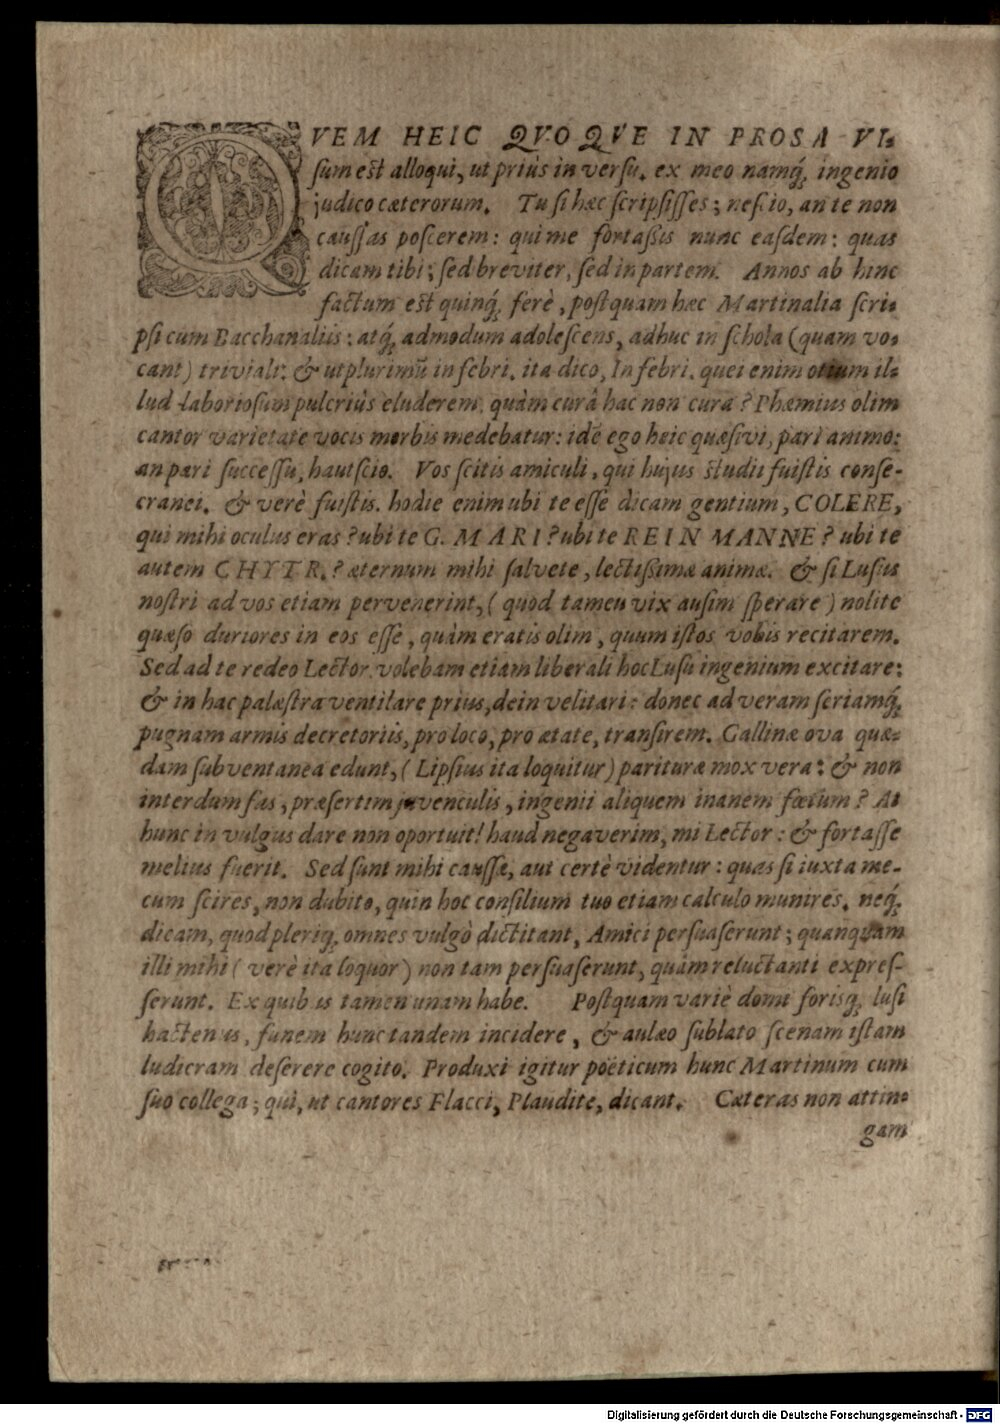 QVEM HEIC QVOQVE IN PROSA VI-
sum est alloqui, ut priùs in versu. ex meo namq́; ingenio
judico cæterorum. Tu si hæc scripsisses; nescio, an te non
caussas poscerem: qui me fortaßis nunc easdem: quas
dicam tibi; sed breviter, sed in partem. Annos ab hinc
factum est quinq́; ferè, postquam hæc Martinalia scri-
psi cum Bacchanaliis: atq́; admodum adolescens, adhuc in schola (quam vo-
cant) triviali: & ut plurimũ in febri. ita dico, In febri. quei enim otium il-
lud laboriosum pulcriùs eluderem, quàm curâ hac non cura? Phæmius olim
cantor varietate vocis morbis medebatur: idẽ ego heic quæsivi, pari animo:
an pari successu, haut scio. Vos scitis amiculi, qui hujus studii fuistis conse-
cranei. & verè fuistis. hodie enim ubi te esse dicam gentium, COLERE,
qui mihi oculus eras? ubi te G. MARI? ubi te REINMANNE? ubi te
autem CHYTR.? æternum mihi salvete, lectißimæ animæ. & si Lusus
nostri ad vos etiam pervenerint, (quod tamen vix ausim sperare) nolite
quæso duriores in eos esse, quàm eratis olim, quum istos vobis recitarem.
Sed ad te redeo Lector. volebam etiam liberali hoc Lusu ingenium excitare:
& in hac palæstra ventilare prius, dein velitari: donec ad veram seriamq́;
pugnam armis decretoriis, pro loco, pro ætate, transirem. Gallinæ ova quæ-
dam subventanea edunt, (Lipsius ita loquitur) parituræ mox vera: & non
interdum fas, præsertim juvenculis, ingenii aliquem inanem fœtum? At
hunc in vulgus dare non oportuit! haud negaverim, mi Lector: & fortasse
melius fuerit. Sed sunt mihi caussæ, aut certè videntur: quas si iuxta me-
cum scires, non dubito, quin hoc consilium tuo etiam calculo munires. neq́;
dicam, quod pleriq́; omnes vulgò dictitant, Amici persuaserunt; quanquam
illi mihi (verè ita loquor) non tam persuaserunt, quàm reluctanti expres-
serunt. Ex quibus tamen unam habe. Postquam variè domi forisq́; lusi
hactenus, funem hunc tandem incidere, & aulæo sublato scenam istam
ludicram deserere cogito. Produxi igitur poëticum hunc Martinum cum
suo collega; qui, ut cantores Flacci, Plaudite, dicant. Cæteras non attin-
gam
Digitalisierung gefördert durch die Deutsche Forschungsgemeinschaft - DFG